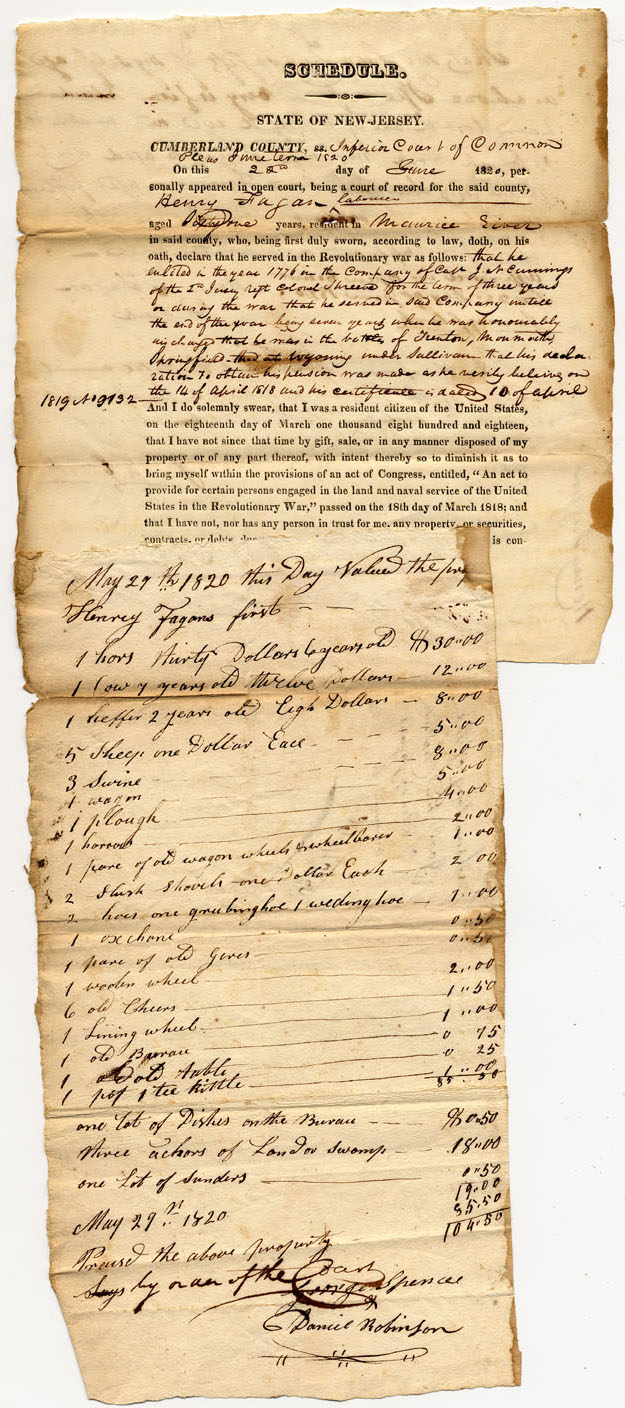 SCHEDULE.
STATE OF NEW-JERSEY.
CUMBERLAND COUNTY, ss. Inferior Court of Common
Pleas June term 1820
On this 2d day of June 1820, per-
sonally appeared in open court, being a court of record for the said county,
Henry Fagan labourer
aged years, resident in Maurice River
in said county, who, being first duly sworn, according to law, doth, on his
oath, declare that he served in the Revolutionary war as follows: that he
enlisted in the year 1776 in the Company of Capt J N Cumings
of the 2d Jersey regt Colonel Shreeve for the term of three years
or during the war that he served in said Company untill
the end of the war being seven years when he was honourably
discharged that he was in the battles of Trenton, Monmouth,
Springfield and at Wyoming under Sullivan that his decla-
ration to obtain his pension was made as he verily believes on
the 14 of April 1818 and his certificate is dated 10 of april
1819 No 9132
And I do solemnly swear, that I was a resident citizen of the United States,
on the eighteenth day of March one thousand eight hundred and eighteen,
that I have not since that time by gift, sale, or in any manner disposed of my
property or of any part thereof, with intent thereby so to diminish it as to
bring myself within the provisions of an act of Congress, entitled, "An act to
provide for certain persons engaged in the land and naval service of the United
States in the Revolutionary War," passed on the 18th day of March 1818; and
that I have not, nor has any person in trust for me, any property, or securities,
contracts, or debts, due is con-
May 29th 1820 this Day Valued the
Henrey Fagans first
1 hors thirty Dollars 6 years old $30.00
1 Cow 7 years old twelve Dollars 12.00
1 heffer 2 years old Eigh Dollars 8.00
5 Sheep one Dollar Eace 5.00
3 Swine 8.00
1 wagon 5.00
1 plough 4.00
1 harrow 2.00
1 pare of old wagon wheels & wheelbarer 1.00
2 Slush Shovels one Dollar Each 2 00
2 hoes one grubinghoe 1 wedinghoe 1.00
1 oxchane 0.50
1 pare of old Geers 0.50
1 woolen wheel 2.00
6 old Cheers 1.50
1 Lining wheel 1.00
1 old Bureau 0 75
1 old table 0 25
1 pot 1 tee kittle 1.00
85.50
one Lot of Dishes on the Bureau $0.50
three achors of Land or Swamp 18.00
one Lot of Sunders 0.50
19.00
85.50
104.50
May 29th 1820
Praised the above property
by order of the Coart
George Spence
Daniel Robinson